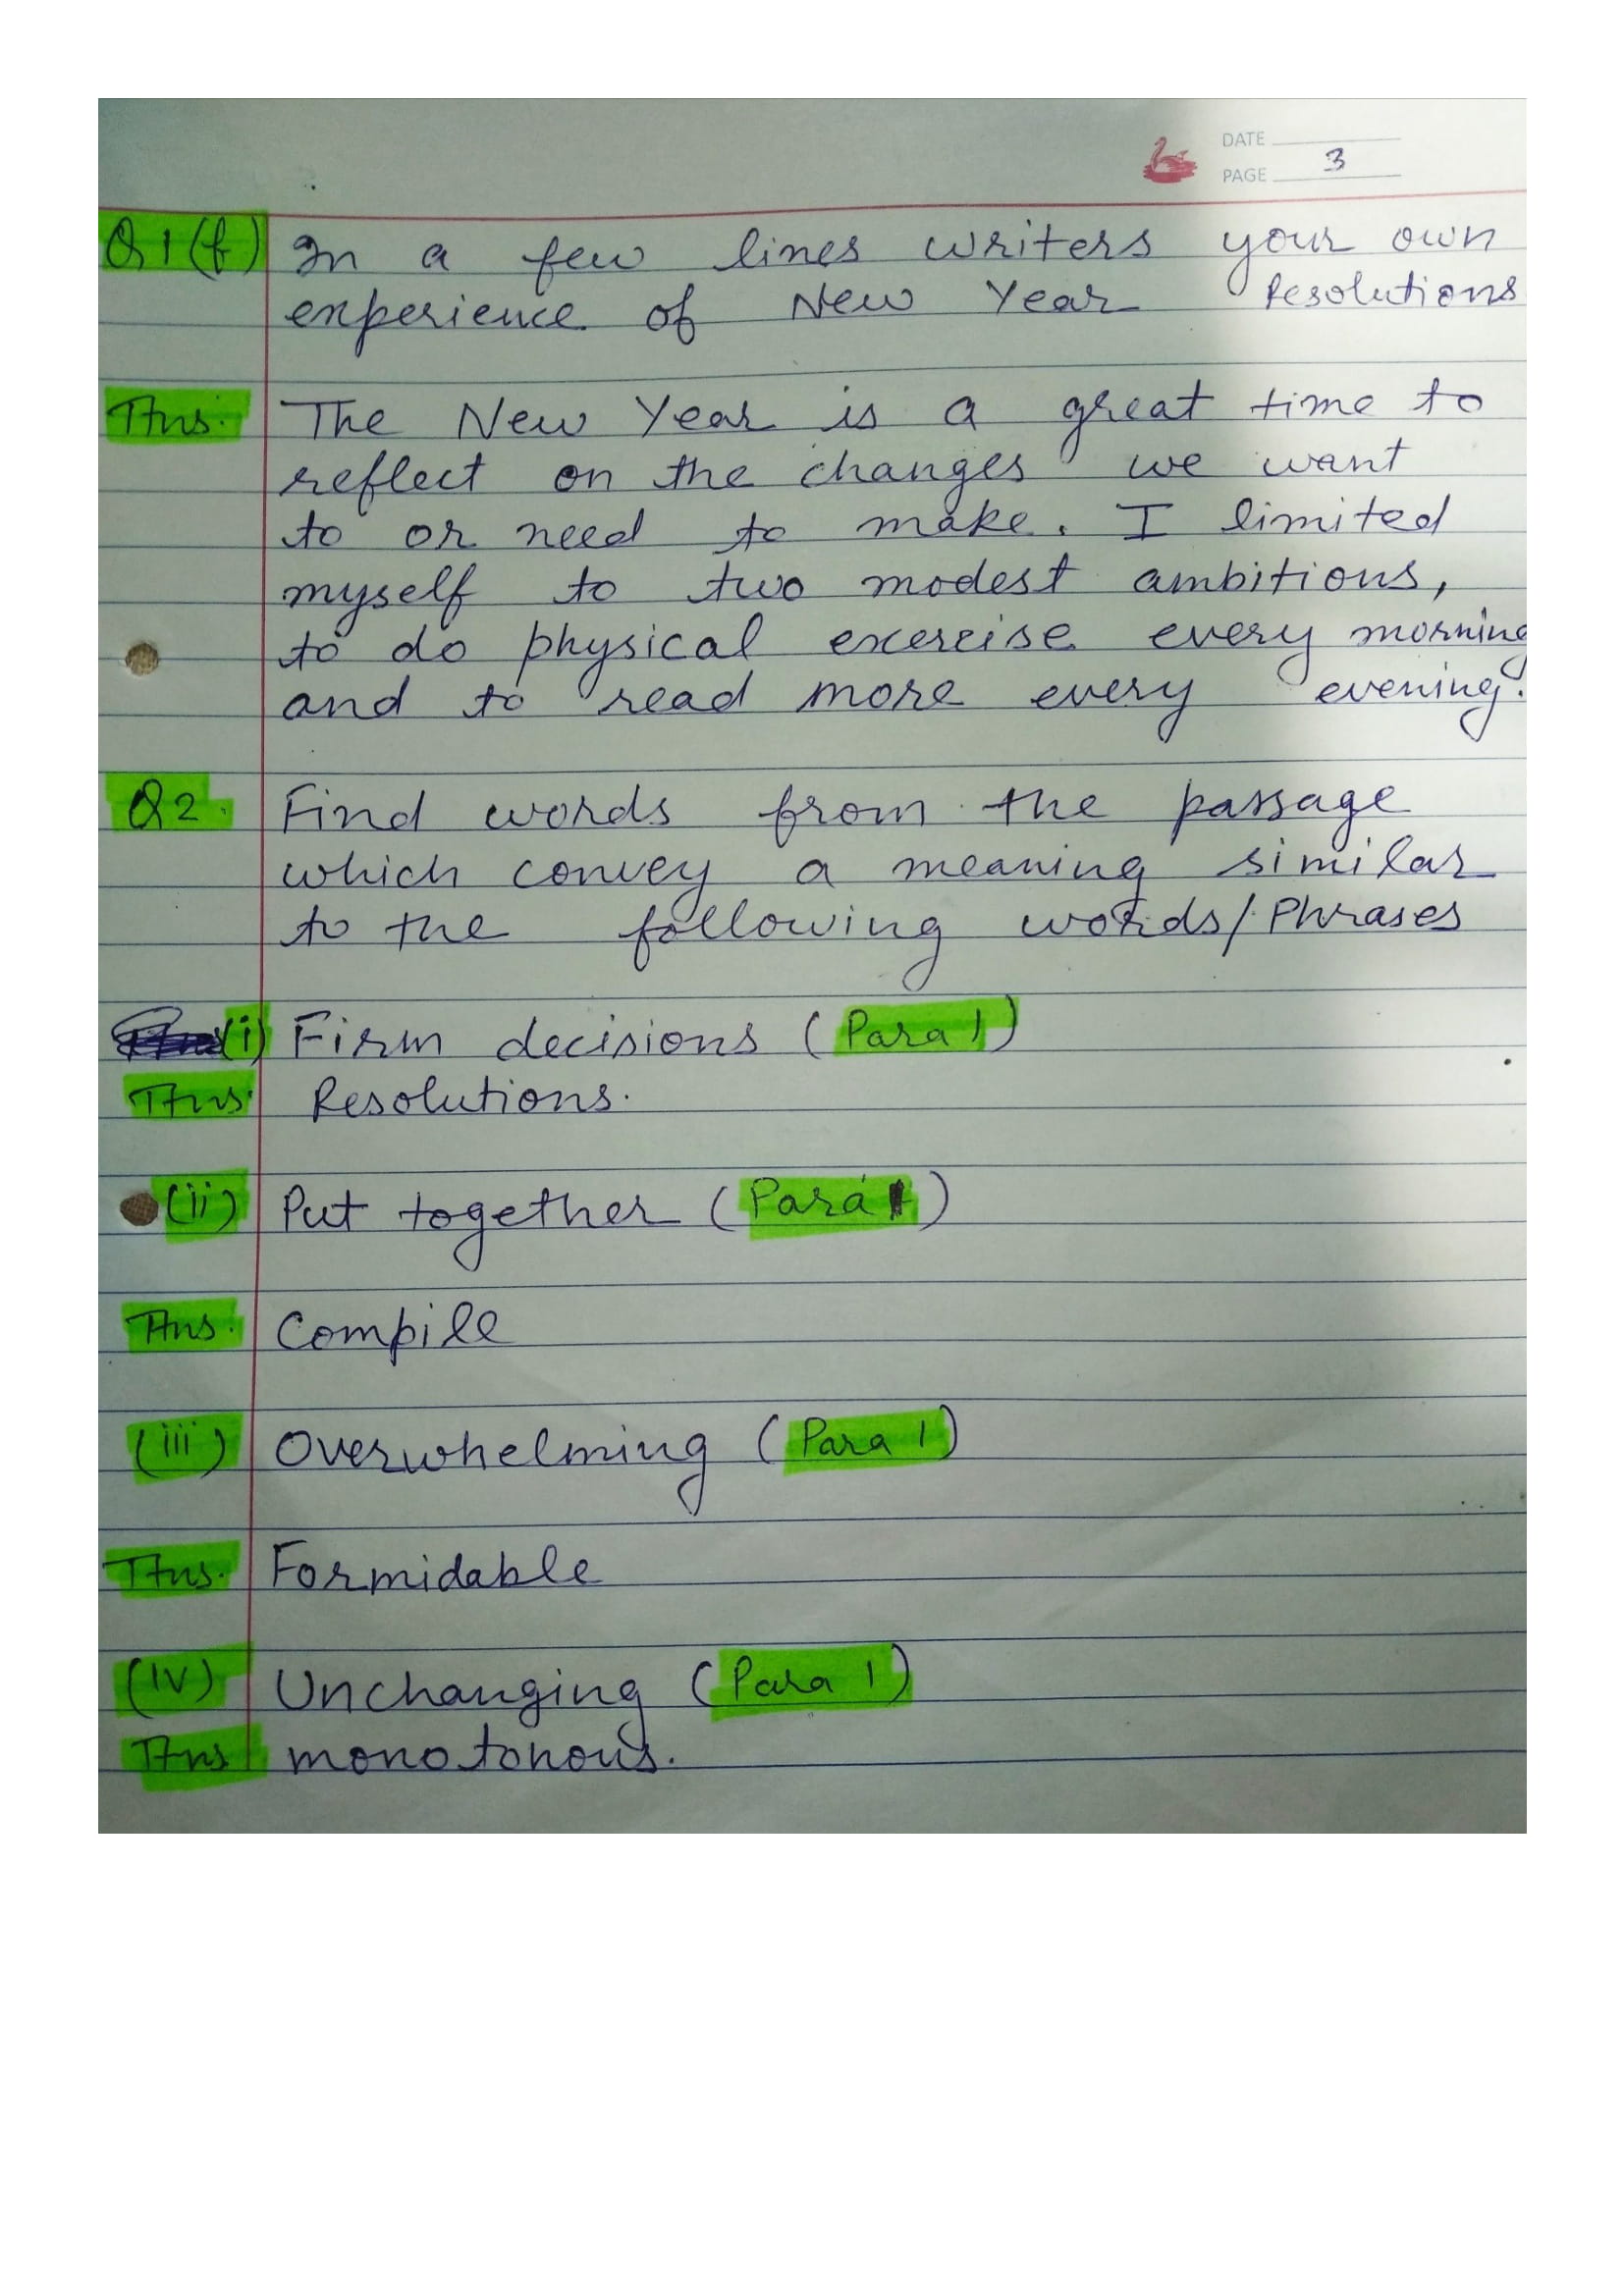 DATE
PAGE 3
Q1(f) In a few lines writers your own
experience of New Year Resolutions
Ans. The New Year is a great time to
reflect on the changes we want
to or need to make. I limited
myself to two modest ambitions,
to do physical excercise every morning
and to read more every evening.
Q2. Find words from the passage
which convey a meaning similar
to the following words/Phrases
(i) Firm decisions (Para 1)
Ans. Resolutions.
(ii) Put together (Para 1)
Ans. Compile
(iii) Overwhelming (Para 1)
Ans. Formidable
(iv) Unchanging (Para 1)
Ans monotonous.